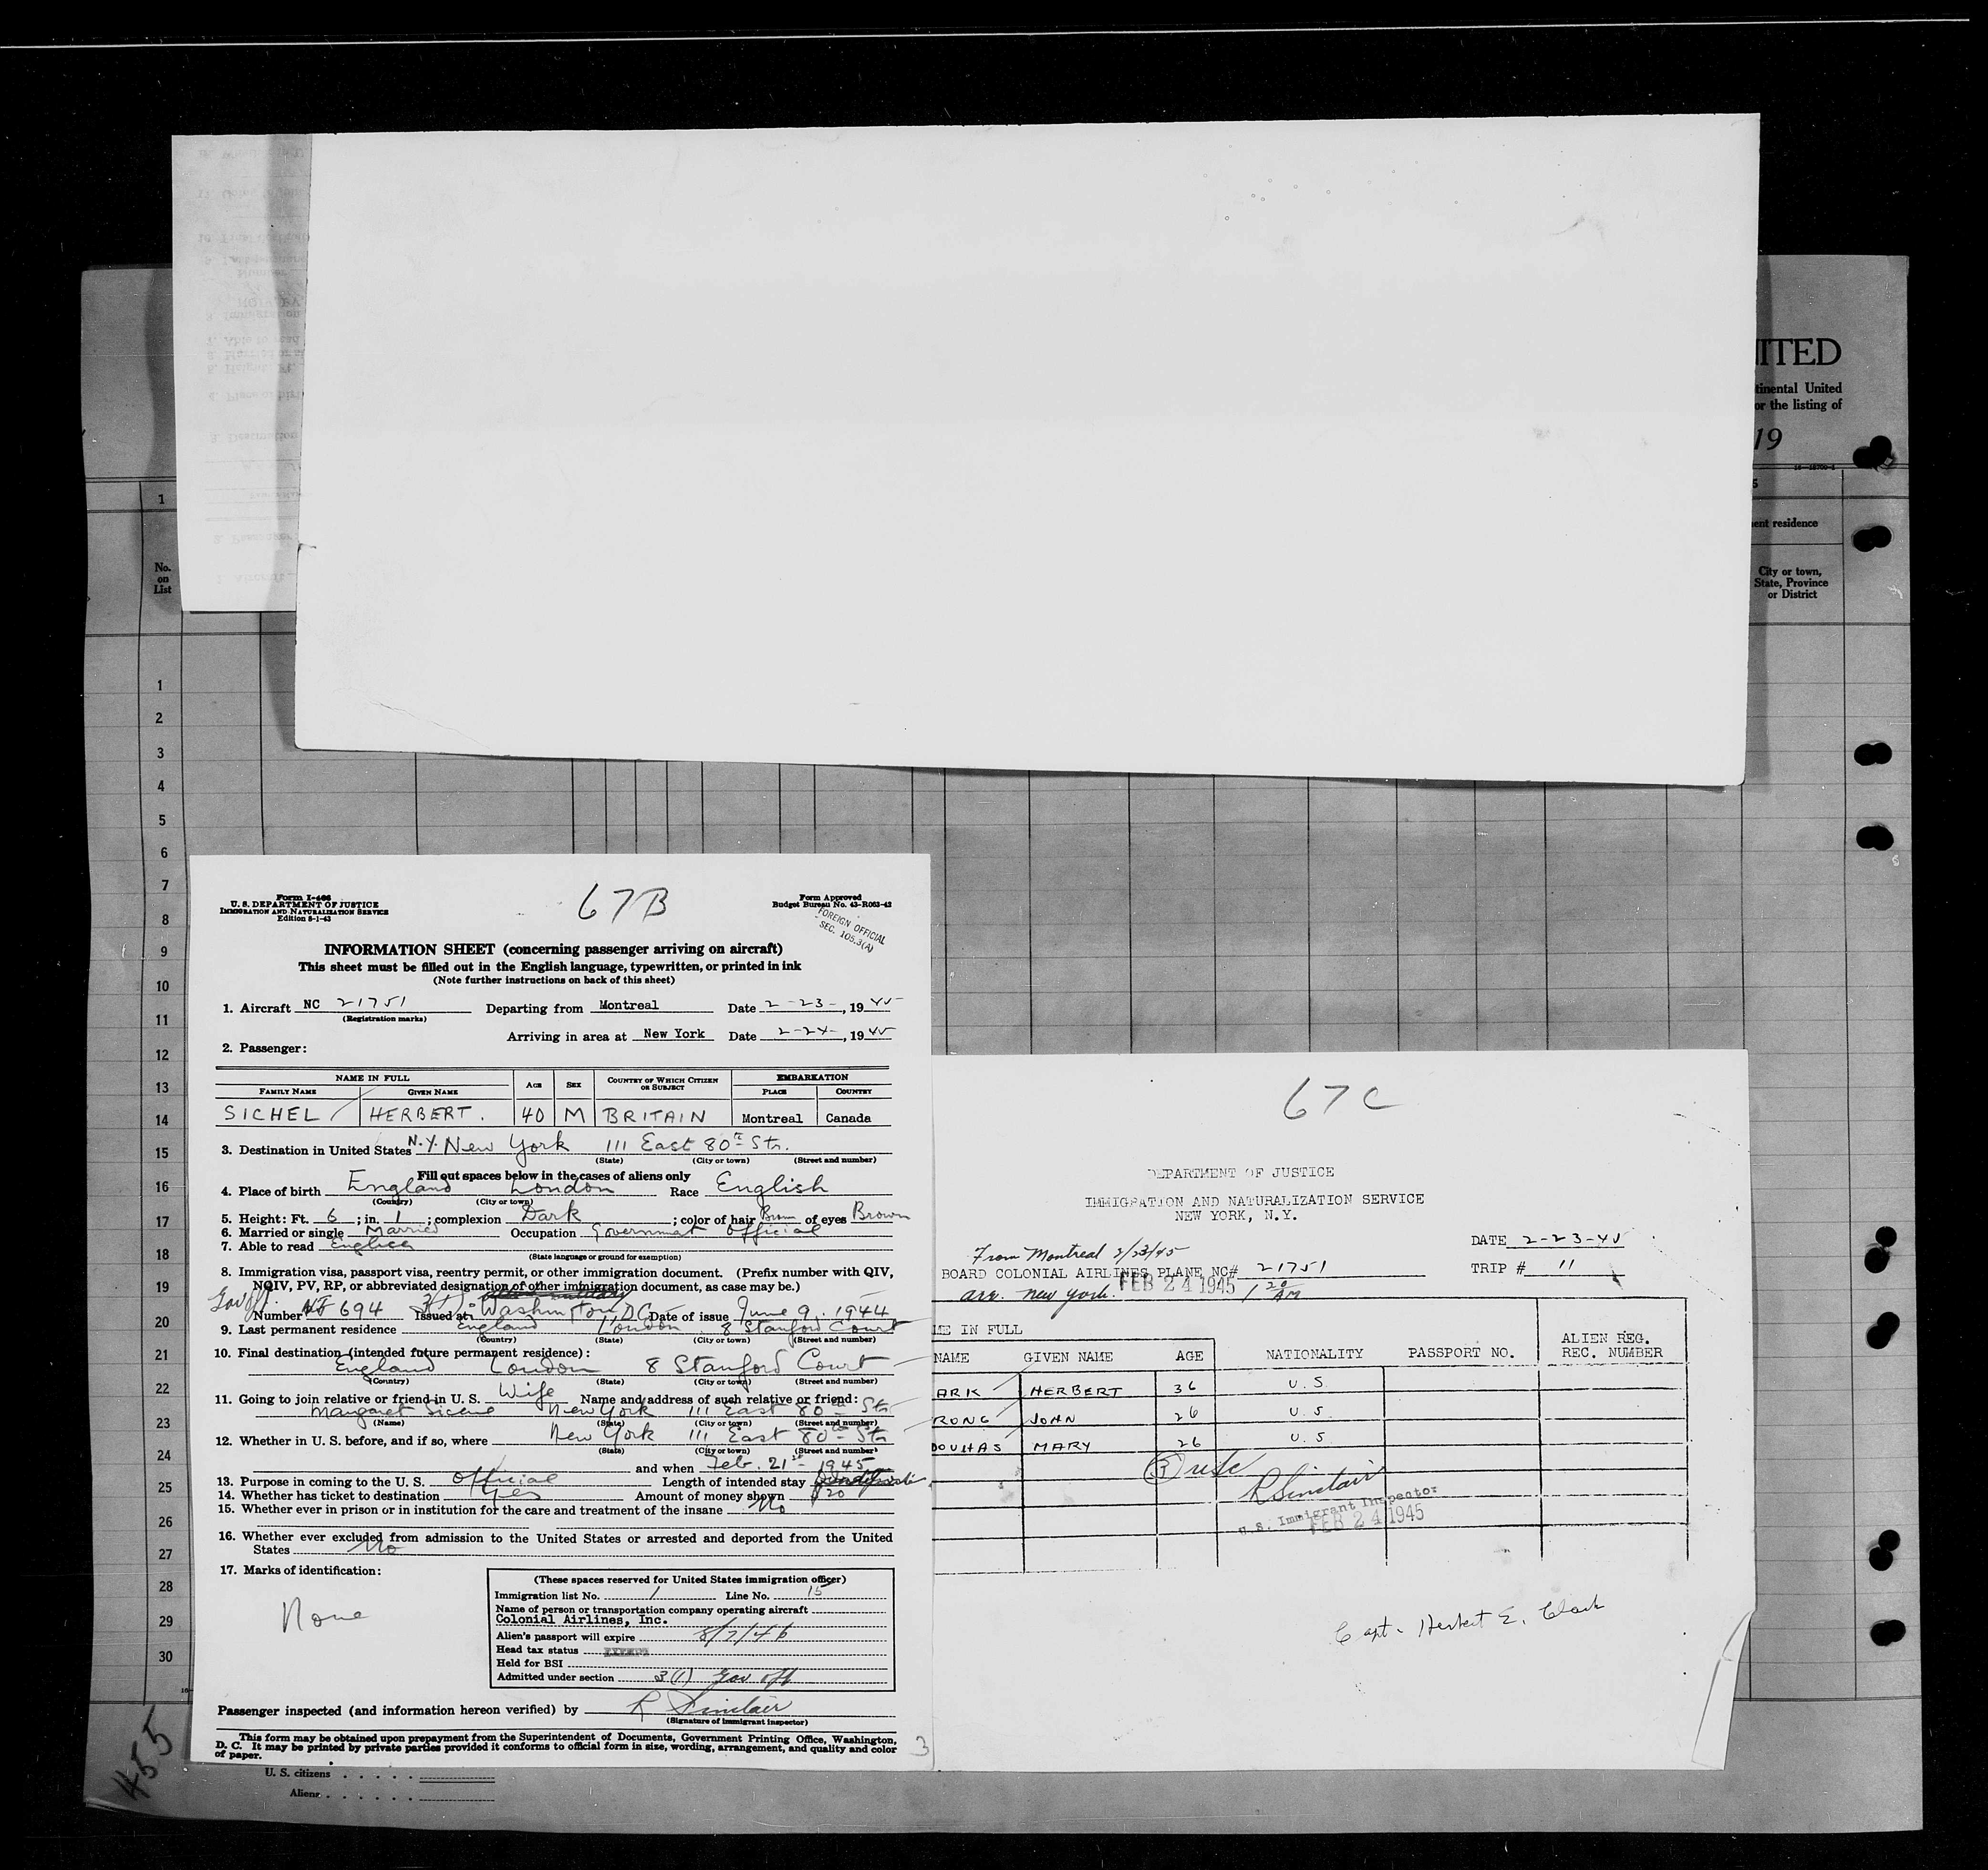 ITED
tinental United
or the listing of
19
5
ent residence
City or town,
State, Province
or District
1
No.
on
List
1
2
3
4
5
6
7
8
9
10
11
12
13
14
15
16
17
18
19
20
21
22
23
24
25
26
27
28
29
30
455
U. S. citizens
Aliens
67B
Form I-466
U. S. DEPARTMENT OF JUSTICE
IMMIGRATION AND NATURALIZATION SERVICE
Edition 8-1-43
Form Approved
Budget Bureau No. 43-R063-42
FOREIGN OFFICIAL
SEC. 105.3(A)
INFORMATION SHEET (concerning passenger arriving on aircraft)
This sheet must be filled out in the English language, typewritten, or printed in ink
(Note further instructions on back of this sheet)
1. Aircraft NC 21751 Departing from Montreal Date 2-23-, 1945
(Registration marks)
Arriving in area at New York Date 2-24-, 1945
2. Passenger:
NAME IN FULL AGE SEX COUNTRY OF WHICH CITIZEN OR SUBJECT EMBARKATION
FAMILY NAME GIVEN NAME PLACE COUNTRY
SICHEL HERBERT. 40 M BRITAIN Montreal Canada
3. Destination in United States N.Y. New York 111 East 80th Str.
(State) (City or town) (Street and number)
Fill out spaces below in the cases of aliens only
4. Place of birth England London Race English
(Country) (City or town)
5. Height: Ft. 6; in. 1; complexion Dark; color of hair Brown of eyes Brown
6. Married or single Married Occupation Government Official
7. Able to read English
(State language or ground for exemption)
8. Immigration visa, passport visa, reentry permit, or other immigration document. (Prefix number with QIV,
NQIV, PV, RP, or abbreviated designation of other immigration document, as case may be.)
Number 694 3(1) Issued at Washington, DC Date of issue June 9, 1944
9. Last permanent residence England London 8 Stanford Court
(Country) (State) (City or town) (Street and number)
10. Final destination (intended future permanent residence):
England London 8 Stanford Court
(Country) (State) (City or town) (Street and number)
11. Going to join relative or friend in U. S. Wife Name and address of such relative or friend:
Margaret New York 111 East 80th Str.
(Name) (State) (City or town) (Street and number)
12. Whether in U. S. before, and if so, where New York 111 East 80th Str
(State) (City or town) (Street and number)
and when Feb. 21st 1945
13. Purpose in coming to the U. S. Official Length of intended stay
14. Whether has ticket to destination Yes Amount of money shown $20
15. Whether ever in prison or in institution for the care and treatment of the insane No
16. Whether ever excluded from admission to the United States or arrested and deported from the United
States No
17. Marks of identification:
None
(These spaces reserved for United States immigration officer)
Immigration list No. 1 Line No. 15
Name of person or transportation company operating aircraft
Colonial Airlines, Inc.
Alien's passport will expire 8/7/46
Head tax status EXEMPT
Held for BSI
Admitted under section 3(1) Gov off
Passenger inspected (and information hereon verified) by R Sinclair
(Signature of immigrant inspector)
This form may be obtained upon prepayment from the Superintendent of Documents, Government Printing Office, Washington,
D. C. It may be printed by private parties provided it conforms to official form in size, wording, arrangement, and quality and color
of paper.
3
67C
DEPARTMENT OF JUSTICE
IMMIGRATION AND NATURALIZATION SERVICE
NEW YORK, N.Y.
DATE 2-23-45
From Montreal 2/23/45
BOARD COLONIAL AIRLINES PLANE NC# 21751 TRIP # 11
arr. New York. FEB 24 1945 1 20 AM
ME IN FULL
NAME GIVEN NAME AGE NATIONALITY PASSPORT NO. ALIEN REG.
REC. NUMBER
ARK HERBERT 36 U.S
RONG JOHN 26 U.S
DOUHAS MARY 26 U.S
(3) usc
R Sinclair
U.S. Immigrant Inspector
FEB 24 1945
Capt. Herbert E. Clark